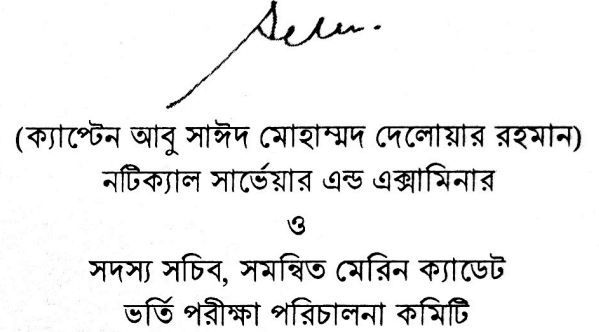 (ক্যাপ্টেন আবু সাঈদ মোহাম্মদ দেলোয়ার রহমান)
নটিক্যাল সার্ভেয়ার এন্ড এক্সামিনার
ও
সদস্য সচিব, সমন্বিত মেরিন ক্যাডেট
ভর্তি পরীক্ষা পরিচালনা কমিটি